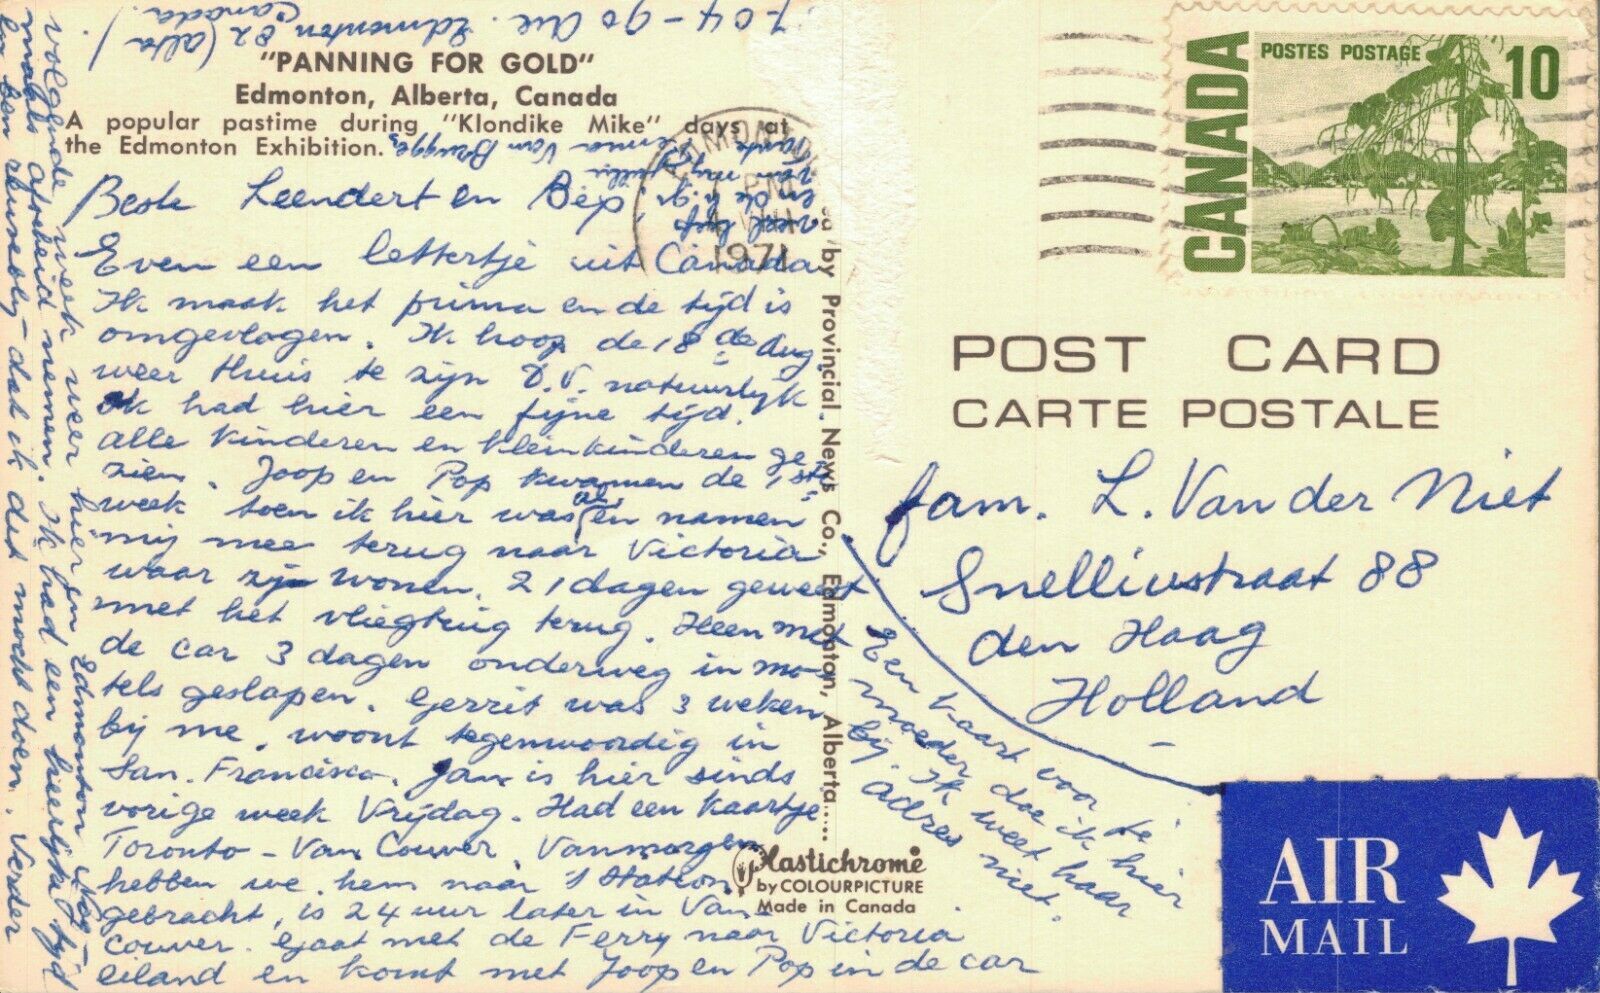 "PANNING FOR GOLD"
Edmonton, Alberta, Canada
A popular pastime during "Klondike Mike" days at
the Edmonton Exhibition.
Beste Leendert en Bep,
Even een lettertje uit Canada
Ik maak het prima en de tijd is
omgevlogen. Ik hoop de 18 de Aug
weer thuis te zijn D.V. natuurlijk
Ik had hier een fijne tijd.
alle kinderen en kleinkinderen ge
zien. Joop en Pop kwamen de 1ste
week toen ik hier was en namen
mij mee terug naar Victoria
waar zij wonen. 21 dagen geweest
met het vliegtuig terug. Heen met
de car 3 dagen onderweg in mo-
tels geslapen. Gerrit was 3 weken
bij me, woont tegenwoordig in
San. Francisco. Jan is hier sinds
vorige week Vrijdag. Had een kaartje
Toronto - Van Couver. Vanmorgen
hebben we hem naar 't Station
gebracht, is 24 uur later in Van-
couver. Gaat met de Ferry naar Victoria
eiland en komt met Joop en Pop in de car
volgende week weer hier en Edmonton. Nog-
maals afscheid nemen. Ik had een heerlijke tijd
en ben zoo blij dat ik dit mocht doen. Verder
veel liefs
en de h. gr.
van mij jullie
Tante Annie Van Brugge
704-90 Ave. Edmonton 82 (alta)
Canada
1971
PM
CANADA
POSTES POSTAGE
10
POST CARD
CARTE POSTALE
fam. L. Van der Niet
Snelliustraat 88
den Haag
Holland
Een kaart voor te
moeder doe ik hier
bij. Ik weet haar
adres niet.
by Provincial News Co., Edmonton, Alberta.....
Plastichrome
by COLOURPICTURE
Made in Canada
AIR
MAIL